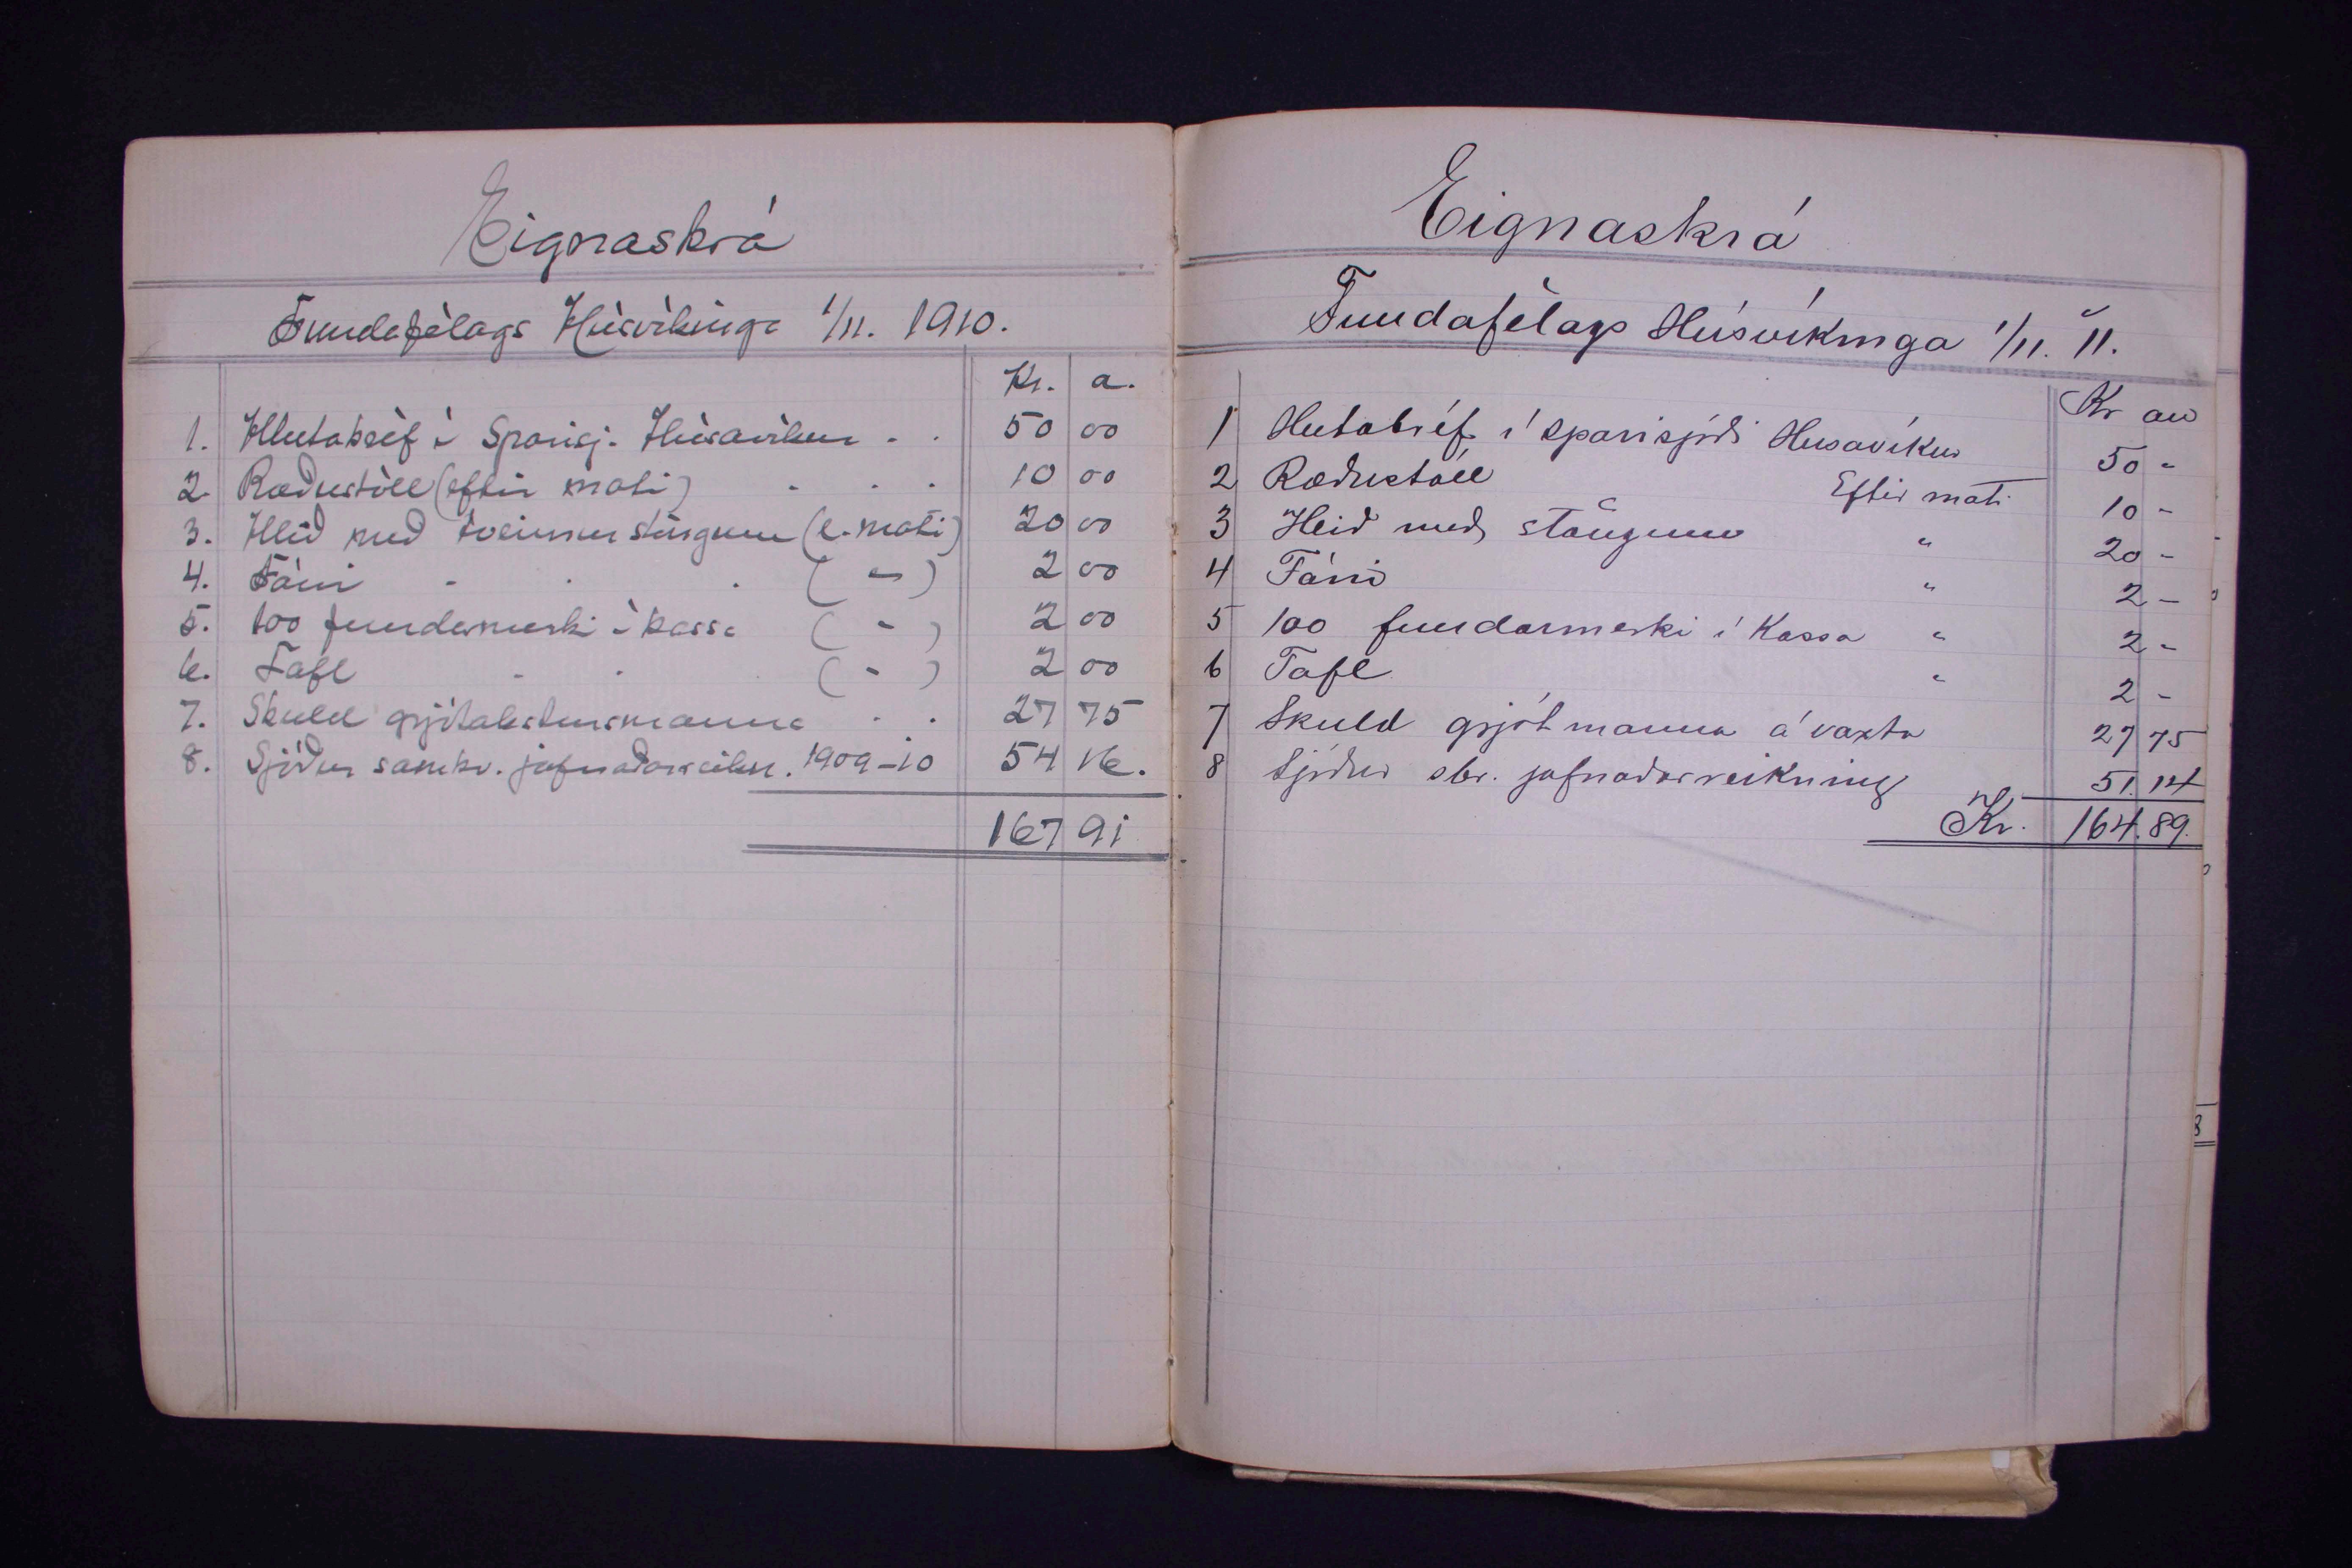 Eignaskrá
Fundafélags Húsvíkinga 1/11. 1910.
Kr. a.
1. Hlutabréf í Sparisj. Húsavíkur . . 50 00
2. Ræðustóll (eftir mati) . . . 10 00
3. Hlið með tveimur stöngum (e. mati) 20 00
4. Fáni . . . ( - ) 2 00
5. 100 fundarmerki í kassa ( - ) 2 00
6. Tafl . . . ( - ) 2 00
7. Skuld grjótaksturs manna . . 27 75
8. Sjóður samkv. jafnaðarreikn. 1909-10 54 16.
167 91
Eignaskrá
Fundafélags Húsvíkinga 1/11. 11.
Kr au
1 Hlutabréf í sparisjóði Húsavíkur 50 -
2 Ræðustóll Eftir mati 10 -
3 Hlið með stöngum " 20 -
4 Fáni " 2 -
5 100 fundarmerki í Kassa " 2 -
6 Tafl " 2 -
7 Skuld grjótmanna á vaxta 27 75
8 Sjóður sbr. jafnaðarreikning 51.14
Kr. 164.89.